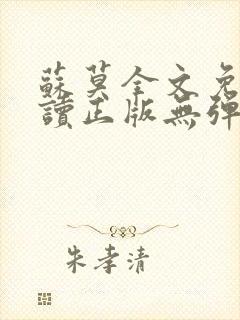 蘇莫全文免
讀正版無彈
朱孝清